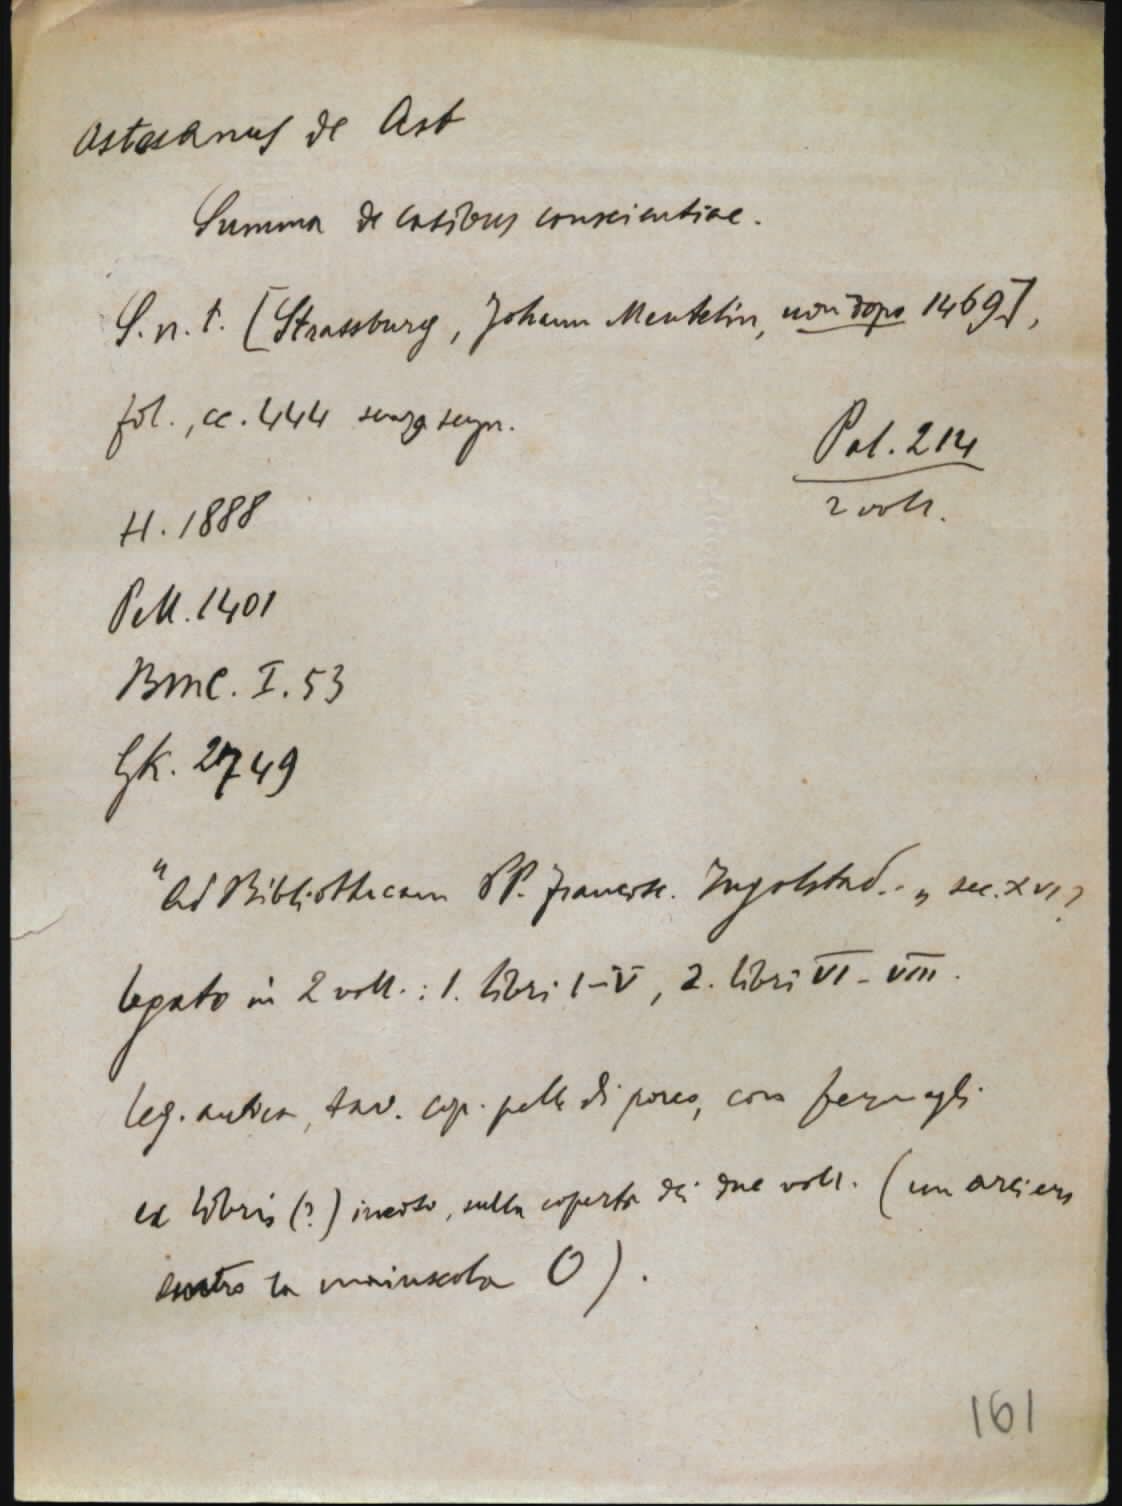 Astesanus de Ast
Summa de casibus conscientiae.
S. n. t. [Strassburg, Johann Mentelin, non dopo 1469],
fol., cc. 444 senza segn.
Pal. 214
2 voll.
H. 1888
Pell. 1401
BMC. I. 53
GK. 2749
"Ad Bibliothecam PP. Francisc. Ingolstad.." sec. XVI?
legato in 2 voll.: 1. libri I-V, 2. libri VI-VIII.
leg. antica, tav. cop. pelle di porco, con fermagli
ex libris (?) inciso, sulla coperta dei due voll. (un arciere
entro la maiuscola O).
161